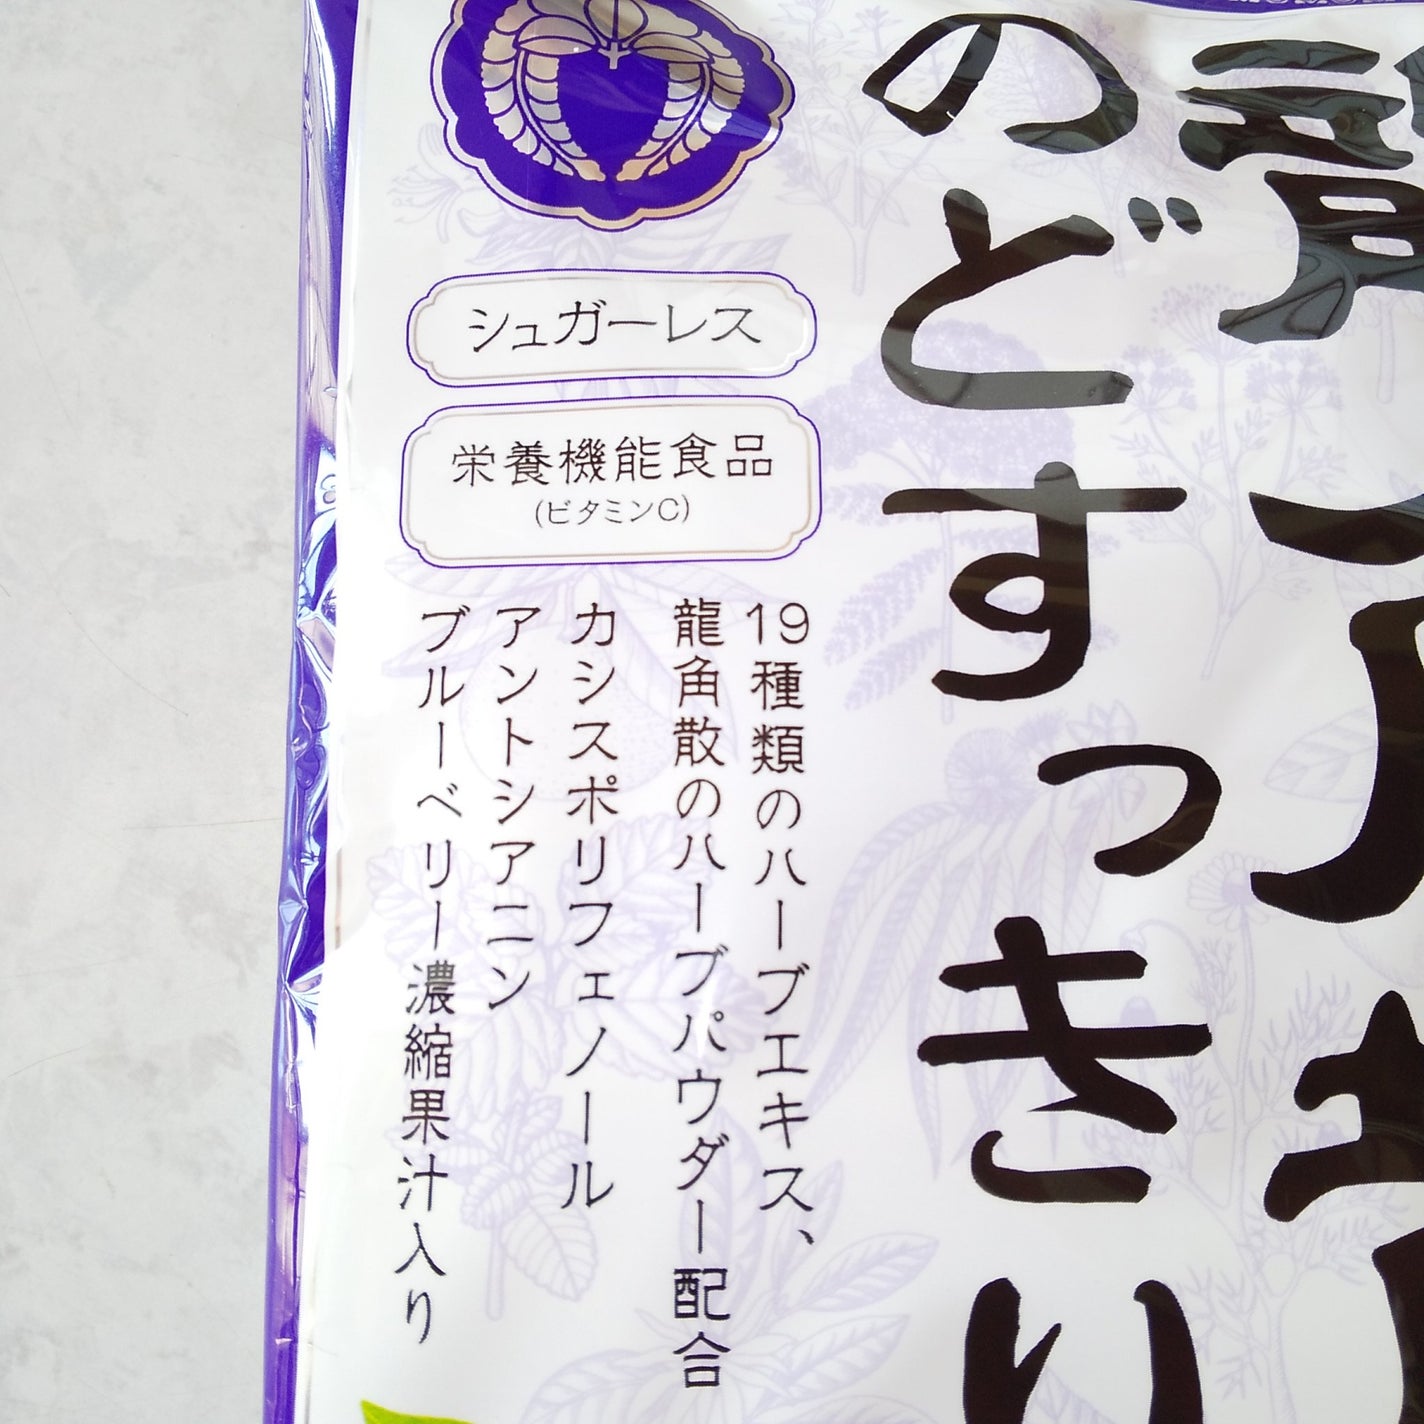 龍角散
のどすっきり
シュガーレス
栄養機能食品
(ビタミンC)
19種類のハーブエキス、
龍角散のハーブパウダー配合
カシスポリフェノール
アントシアニン
ブルーベリー濃縮果汁入り